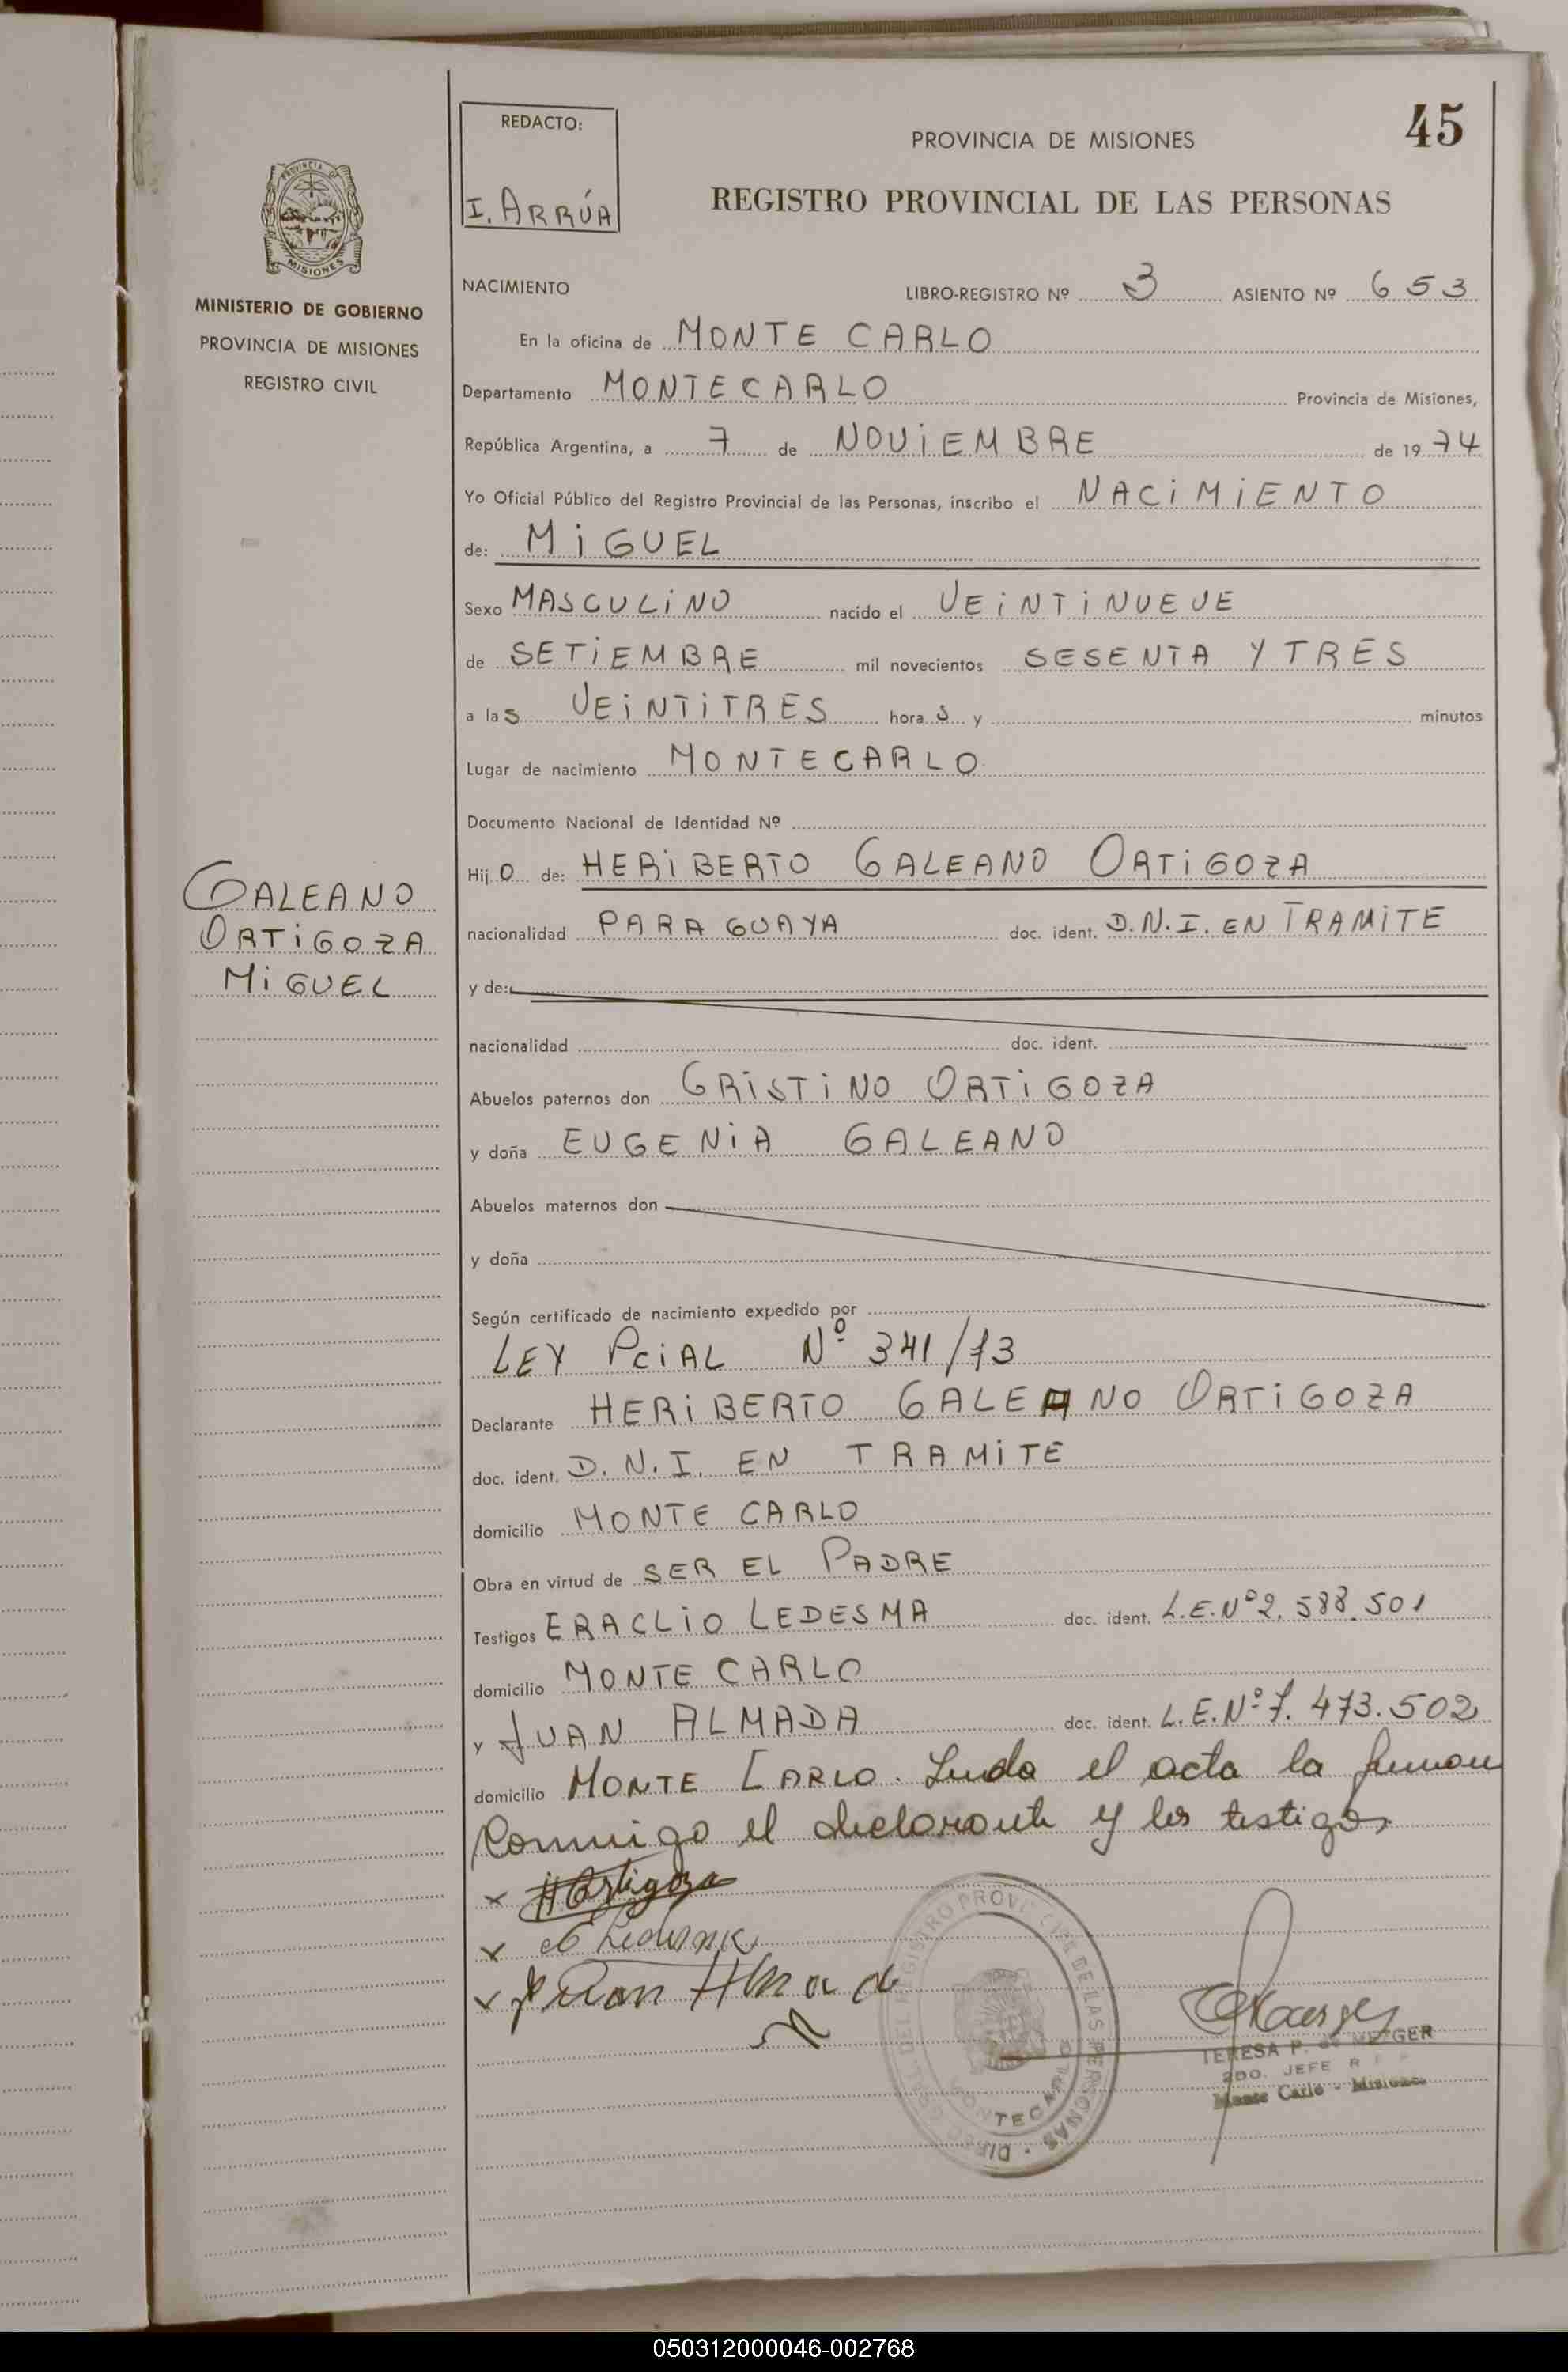 45
REDACTO:
I. ARRÚA
PROVINCIA DE MISIONES
REGISTRO PROVINCIAL DE LAS PERSONAS
PROVINCIA D
MISIONES
MINISTERIO DE GOBIERNO
PROVINCIA DE MISIONES
REGISTRO CIVIL
NACIMIENTO LIBRO-REGISTRO Nº 3 ASIENTO Nº 653
En la oficina de MONTE CARLO
Departamento MONTECARLO Provincia de Misiones,
República Argentina, a 7 de NOViEMBRE de 1974
Yo Oficial Público del Registro Provincial de las Personas, inscribo el NACiMiENTO
de: MiGUEL
Sexo MASCULiNO nacido el VEiNTiNUEVE
de SETiEMBRE mil novecientos SESENTA Y TRES
a las VEiNTiTRES horas y minutos
Lugar de nacimiento MONTECARLO
Documento Nacional de Identidad Nº
Hijo de: HERiBERTO GALEANO ORTiGOZA
GALEANO
ORTiGOZA
MiGUEL
nacionalidad PARAGUAYA doc. ident. D.N.I. EN TRAMiTE
y de:
nacionalidad doc. ident.
Abuelos paternos don CRiSTiNO ORTiGOZA
y doña EUGENiA GALEANO
Abuelos maternos don
y doña
Según certificado de nacimiento expedido por
LEY PCiAL Nº 341/73
Declarante HERiBERTO GALEANO ORTiGOZA
doc. ident. D.N.I. EN TRAMiTE
domicilio MONTE CARLO
Obra en virtud de SER EL PADRE
Testigos ERACLiO LEDESMA doc. ident. L.E.Nº 2.588.501
domicilio MONTE CARLO
y JUAN ALMADA doc. ident. L.E.Nº 7.473.502
domicilio MONTE CARLO. Leida el acta la firman
Conmigo el declarante y los testigos
x H Ortigoza
x E Ledesma
x Juan Almada
MONTECARLO
TERESA P. de METZGER
2DO. JEFE R
Monte Carlo - Misiones
050312000046-002768